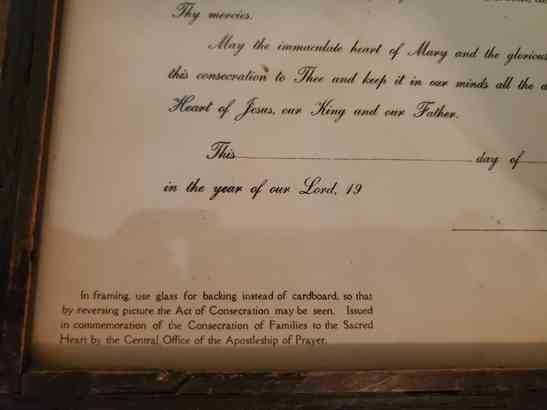 Thy mercies.
May the immaculate heart of Mary and the glorious
this consecration to Thee and keep it in our minds all the
Heart of Jesus, our King and our Father.
This day of
in the year of our Lord, 19
In framing, use glass for backing instead of cardboard, so that
by reversing picture the Act of Consecration may be seen. Issued
in commemoration of the Consecration of Families to the Sacred
Heart by the Central Office of the Apostleship of Prayer.